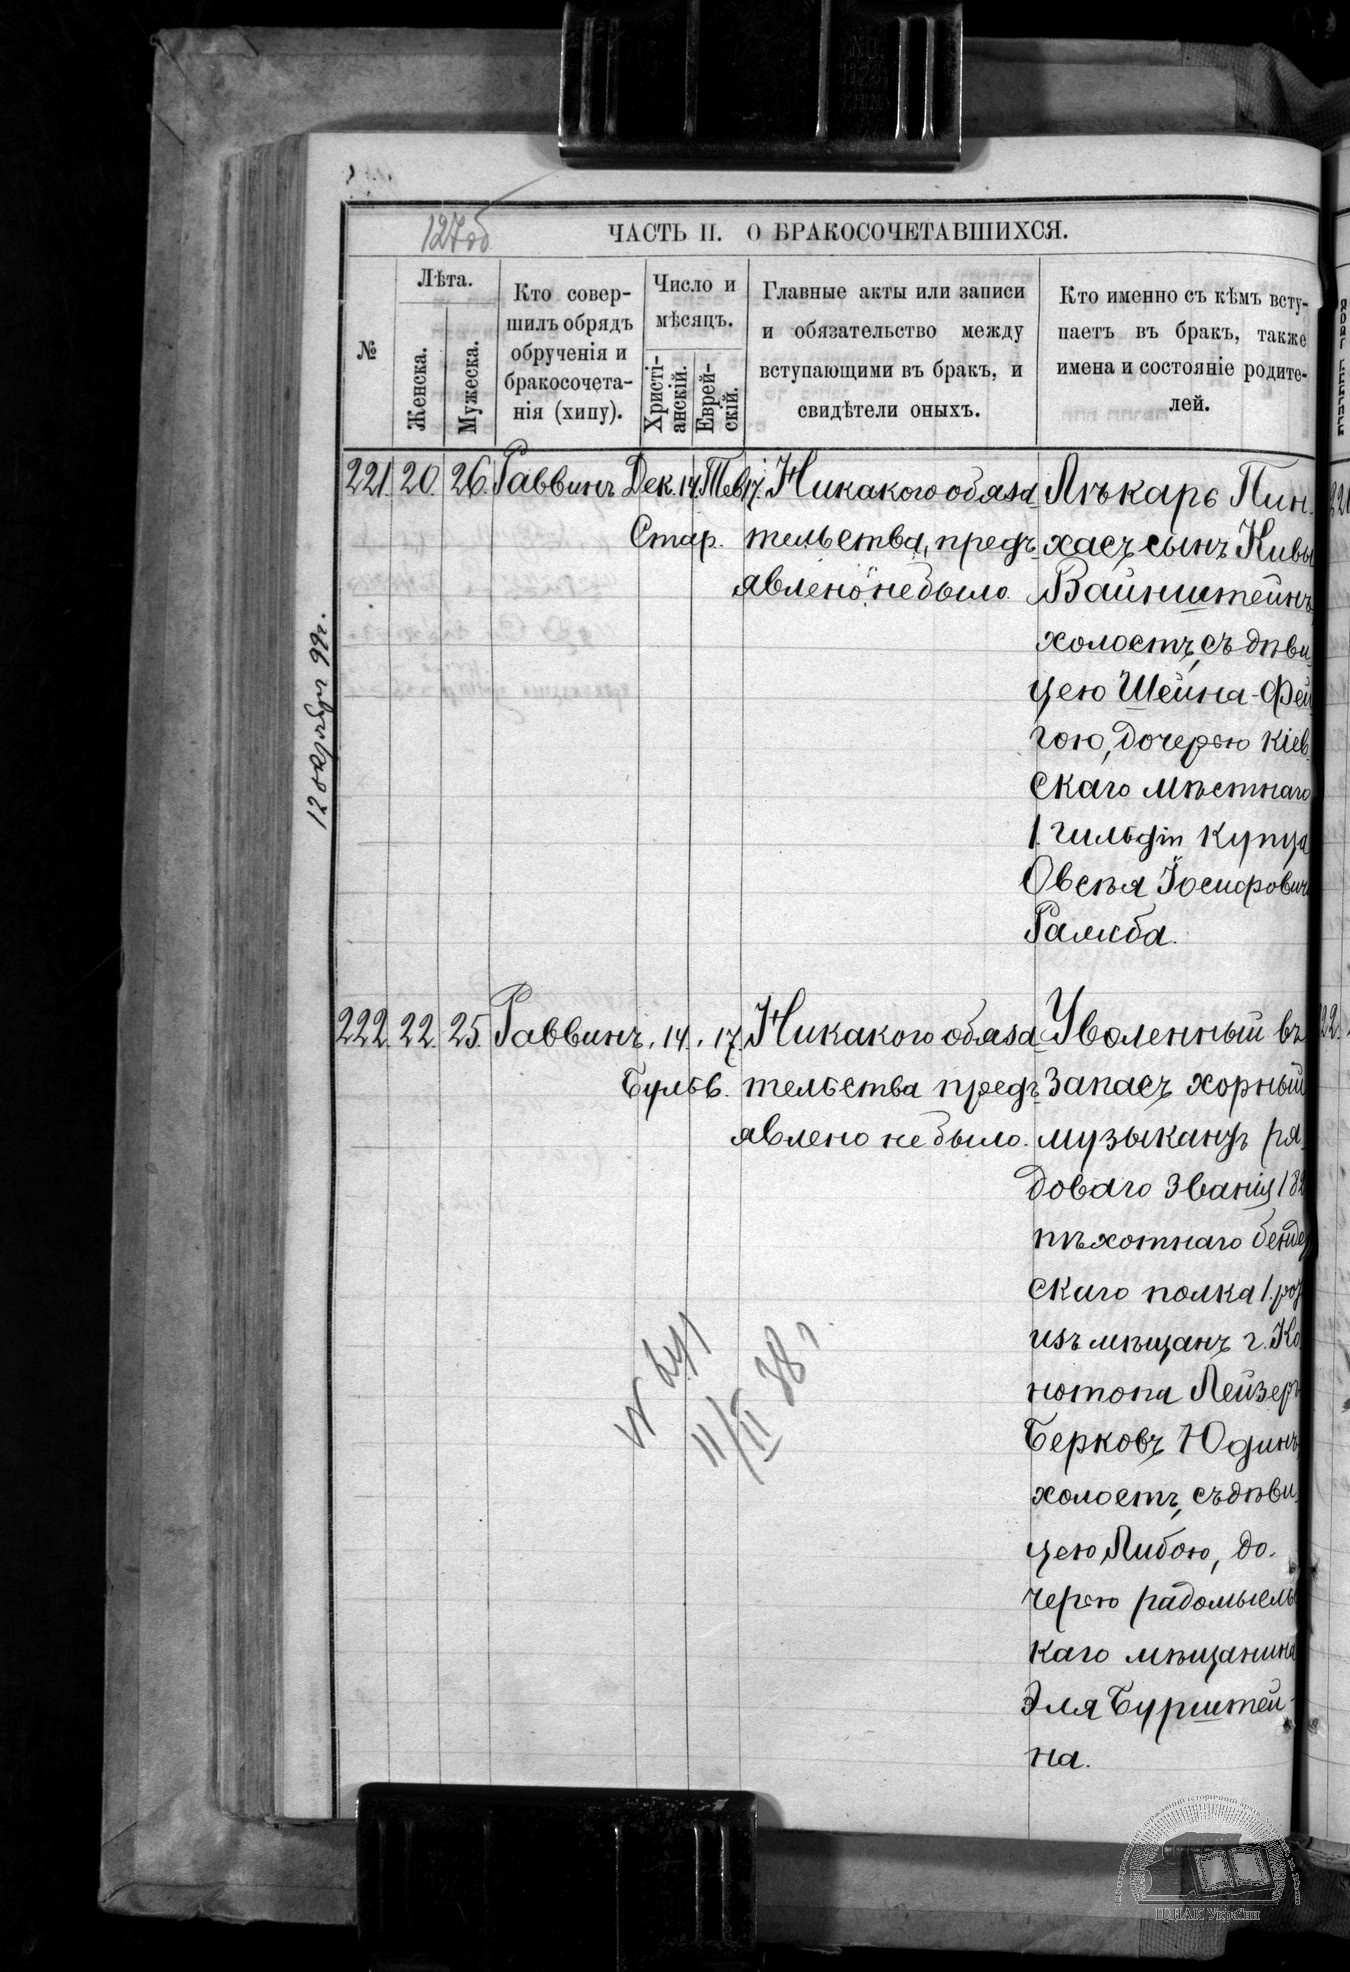 127об
ЧАСТЬ II. О БРАКОСОЧЕТАВШИХСЯ.
№
Лѣта.
Женска.
Мужеска.
Кто совер-
шилъ обрядъ
обрученія и
бракосочета-
нія (хипу).
Число и
мѣсяцъ.
Христі-
анскій.
Еврей-
скій.
Главные акты или записи
и обязательство между
вступающими въ бракъ, и
свидѣтели оныхъ.
Кто именно съ кѣмъ всту-
паетъ въ бракъ, также
имена и состояніе родите-
лей.
221. 20. 26. Раввинъ Дек. 14. Тев. 17. Никакого обяза- Лѣкарь Пин-
Стар. тельства, предъ- хасъ сынъ Кивы
явлено не было. Вайнштейнъ,
холостъ, съ дѣви-
цею Шейна-Фей
гою, дочерью кіев-
скаго мѣстнаго
1. гильдіи купца
Овсѣя Іосифович
Рамба.
12 октября 99г.
222. 22. 25. Раввинъ. 14. 17. Никакого обяза- Уволенный въ
Бульв. тельства предъ- запасъ хорный
явлено не было. музыкантъ ря-
доваго званія 182
пѣхотнаго бендер
скаго полка 1. раз
изъ мѣщанъ г. Ко
нотопа Лейзеръ
Берковъ Юдинъ,
холостъ, съ дѣви-
цею Либою, до-
черью радомысль
каго мѣщанина
Эля Бурштей-
на.
11/II 38 г
ЦДІАК України